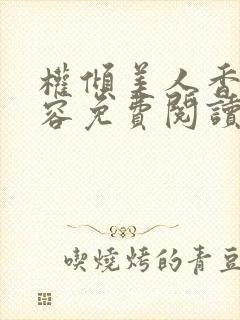 權傾美人香
容免費閱讀
喫燒烤的青豆